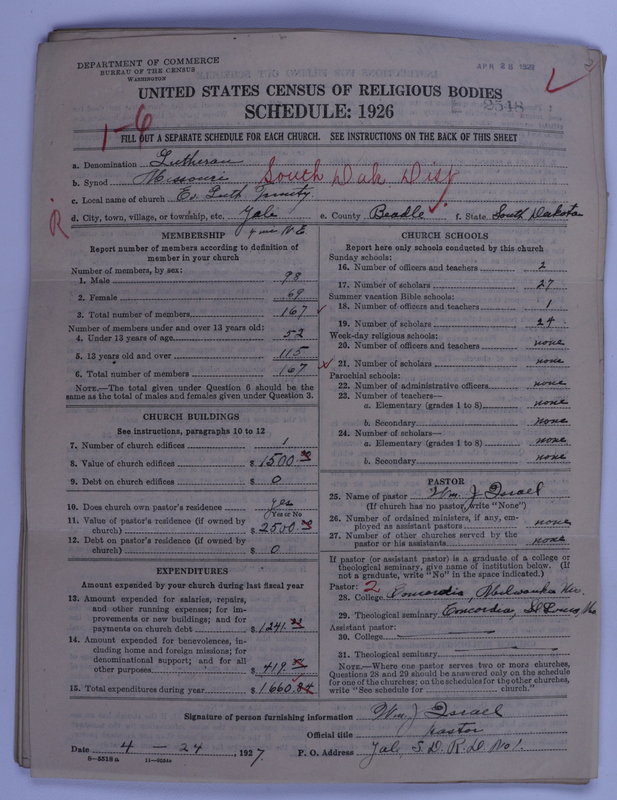 DEPARTMENT OF COMMERCE
BUREAU OF THE CENSUS
WASHINGTON
APR 28 1927
UNITED STATES CENSUS OF RELIGIOUS BODIES
SCHEDULE: 1926
2548
1-6
FILL OUT A SEPARATE SCHEDULE FOR EACH CHURCH. SEE INSTRUCTIONS ON THE BACK OF THIS SHEET
a. Denomination Lutheran
b. Synod Missouri South Dak Dist
c. Local name of church Ev. Luth Trinity
d. City, town, village, or township, etc. Yale e. County Beadle f. State South Dakota
R
MEMBERSHIP
Report number of members according to definition of
member in your church
Number of members, by sex:
1. Male 98
2. Female 69
3. Total number of members 167
Number of members under and over 13 years old:
4. Under 13 years of age 52
5. 13 years old and over 115
6. Total number of members 167
NOTE.—The total given under Question 6 should be the
same as the total of males and females given under Question 3.
CHURCH BUILDINGS
See instructions, paragraphs 10 to 12
7. Number of church edifices 1
8. Value of church edifices $ 1500.00
9. Debt on church edifices $ 0
10. Does church own pastor's residence yes
Yes or No
11. Value of pastor's residence (if owned by
church) $ 2500.00
12. Debt on pastor's residence (if owned by
church) $ 0
EXPENDITURES
Amount expended by your church during last fiscal year
13. Amount expended for salaries, repairs,
and other running expenses; for im-
provements or new buildings; and for
payments on church debt $ 1241.
14. Amount expended for benevolences, in-
cluding home and foreign missions; for
denominational support; and for all
other purposes $ 419.
15. Total expenditures during year $ 1660.84
CHURCH SCHOOLS
Report here only schools conducted by this church
Sunday schools:
16. Number of officers and teachers 2
17. Number of scholars 27
Summer vacation Bible schools:
18. Number of officers and teachers 1
19. Number of scholars 24
Week-day religious schools:
20. Number of officers and teachers none
21. Number of scholars none
Parochial schools:
22. Number of administrative officers none
23. Number of teachers—
a. Elementary (grades 1 to 8) none
b. Secondary none
24. Number of scholars—
a. Elementary (grades 1 to 8) none
b. Secondary none
PASTOR
25. Name of pastor Wm. J. Israel
(If church has no pastor, write "None")
26. Number of ordained ministers, if any, em-
ployed as assistant pastors none
27. Number of other churches served by the
pastor or his assistants none
If pastor (or assistant pastor) is a graduate of a college or
theological seminary, give name of institution below. (If
not a graduate, write "No" in the space indicated.)
Pastor: 2
28. College Concordia, Milwaukee Wis.
29. Theological seminary Concordia, St Louis, Mo
Assistant pastor:
30. College
31. Theological seminary
NOTE.—Where one pastor serves two or more churches,
Questions 28 and 29 should be answered only on the schedule
for one of the churches; on the schedules for the other churches,
write "See schedule for church."
Signature of person furnishing information Wm. J. Israel
Official title Pastor
Date 4 – 24, 1927. P. O. Address Yale, S. D. R. D. No 1.
8—5518 a 11—9524a